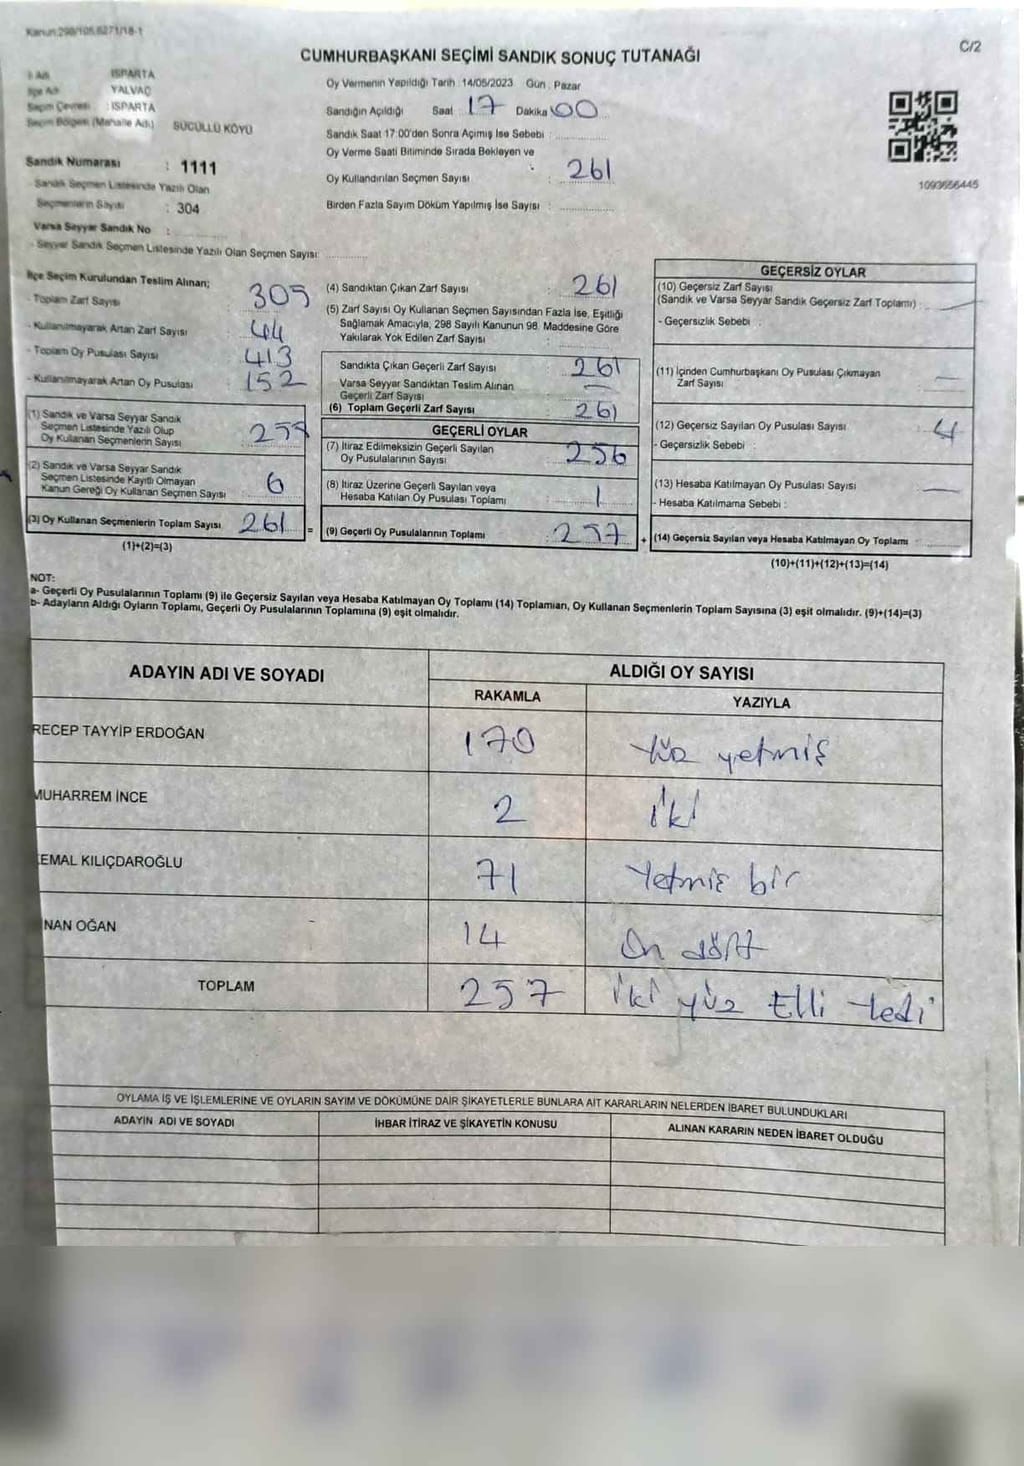 Kanun:298/105,6271/18-1
C/2
CUMHURBAŞKANI SEÇİMİ SANDIK SONUÇ TUTANAĞI
İl Adı ISPARTA
İlçe Adı YALVAÇ
Seçim Çevresi : ISPARTA
Seçim Bölgesi (Mahalle Adı) SÜCÜLLÜ KÖYÜ
Sandık Numarası : 1111
- Sandık Seçmen Listesinde Yazılı Olan
Seçmenlerin Sayısı : 304
Varsa Seyyar Sandık No :
- Seyyar Sandık Seçmen Listesinde Yazılı Olan Seçmen Sayısı:
Oy Vermenin Yapıldığı Tarih : 14/05/2023 Gün : Pazar
Sandığın Açıldığı Saat : 17 Dakika 00
Sandık Saat 17:00'den Sonra Açımış İse Sebebi :
Oy Verme Saati Bitiminde Sırada Bekleyen ve
Oy Kullandırılan Seçmen Sayısı : 261
Birden Fazla Sayım Döküm Yapılmış İse Sayısı :
1093656445
İlçe Seçim Kurulundan Teslim Alınan;
- Toplam Zarf Sayısı 305
- Kullanılmayarak Artan Zarf Sayısı 44
- Toplam Oy Pusulası Sayısı 413
- Kullanılmayarak Artan Oy Pusulası : 152
(1) Sandık ve Varsa Seyyar Sandık
Seçmen Listesinde Yazılı Olup
Oy Kullanan Seçmenlerin Sayısı
(2) Sandık ve Varsa Seyyar Sandık
Seçmen Listesinde Kayıtlı Olmayan
Kanun Gereği Oy Kullanan Seçmen Sayısı 6
(3) Oy Kullanan Seçmenlerin Toplam Sayısı 261 =
(1)+(2)=(3)
(4) Sandıktan Çıkan Zarf Sayısı : 261
(5) Zarf Sayısı Oy Kullanan Seçmen Sayısından Fazla İse, Eşitliği
Sağlamak Amacıyla, 298 Sayılı Kanunun 98. Maddesine Göre
Yakılarak Yok Edilen Zarf Sayısı :
Sandıkta Çıkan Geçerli Zarf Sayısı : 261
Varsa Seyyar Sandıktan Teslim Alınan
Geçerli Zarf Sayısı : —
(6) Toplam Geçerli Zarf Sayısı : 261
GEÇERLİ OYLAR
(7) İtiraz Edilmeksizin Geçerli Sayılan
Oy Pusulalarının Sayısı : 256
(8) İtiraz Üzerine Geçerli Sayılan veya
Hesaba Katılan Oy Pusulası Toplamı : 1
(9) Geçerli Oy Pusulalarının Toplamı : 257 +
GEÇERSİZ OYLAR
(10) Geçersiz Zarf Sayısı
(Sandık ve Varsa Seyyar Sandık Geçersiz Zarf Toplamı) : —
- Geçersizlik Sebebi :
(11) İçinden Cumhurbaşkanı Oy Pusulası Çıkmayan
Zarf Sayısı : —
(12) Geçersiz Sayılan Oy Pusulası Sayısı : 4
- Geçersizlik Sebebi :
(13) Hesaba Katılmayan Oy Pusulası Sayısı : —
- Hesaba Katılmama Sebebi :
(14) Geçersiz Sayılan veya Hesaba Katılmayan Oy Toplamı :
(10)+(11)+(12)+(13)=(14)
NOT:
a- Geçerli Oy Pusulalarının Toplamı (9) ile Geçersiz Sayılan veya Hesaba Katılmayan Oy Toplamı (14) Toplamları, Oy Kullanan Seçmenlerin Toplam Sayısına (3) eşit olmalıdır. (9)+(14)=(3)
b- Adayların Aldığı Oyların Toplamı, Geçerli Oy Pusulalarının Toplamına (9) eşit olmalıdır.
ADAYIN ADI VE SOYADI ALDIĞI OY SAYISI
RAKAMLA YAZIYLA
RECEP TAYYİP ERDOĞAN 170 Yüz yetmiş
MUHARREM İNCE 2 İki
EMAL KILIÇDAROĞLU 71 Yetmiş bir
NAN OĞAN 14 On dört
TOPLAM 257 İki yüz Elli Yedi
OYLAMA İŞ VE İŞLEMLERİNE VE OYLARIN SAYIM VE DÖKÜMÜNE DAİR ŞİKAYETLERLE BUNLARA AİT KARARLARIN NELERDEN İBARET BULUNDUKLARI
ADAYIN ADI VE SOYADI İHBAR İTİRAZ VE ŞİKAYETİN KONUSU ALINAN KARARIN NEDEN İBARET OLDUĞU